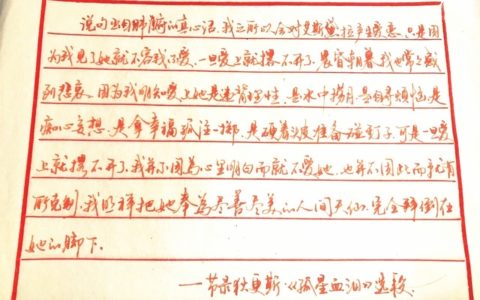 说句出自肺腑的真心话，我之所以会对艾斯黛拉产生爱意，只是因
为我见了她就不容我不爱。一旦爱上就撂不开了。晨昏朝暮我也常常感
到悲哀，因为我明知爱上她是违背理性，是水中捞月，是自寻烦恼，是
痴心妄想，是拿幸福孤注一掷，是硬着头皮准备碰钉子。可是一旦爱
上就撂不开了，我并不因为心里明白而就不爱她，也并不因此而就有
所克制，我照样把她奉为尽善尽美的人间天仙，完全拜倒在
她的脚下。
——节录狄更斯·《孤星血泪》选段.